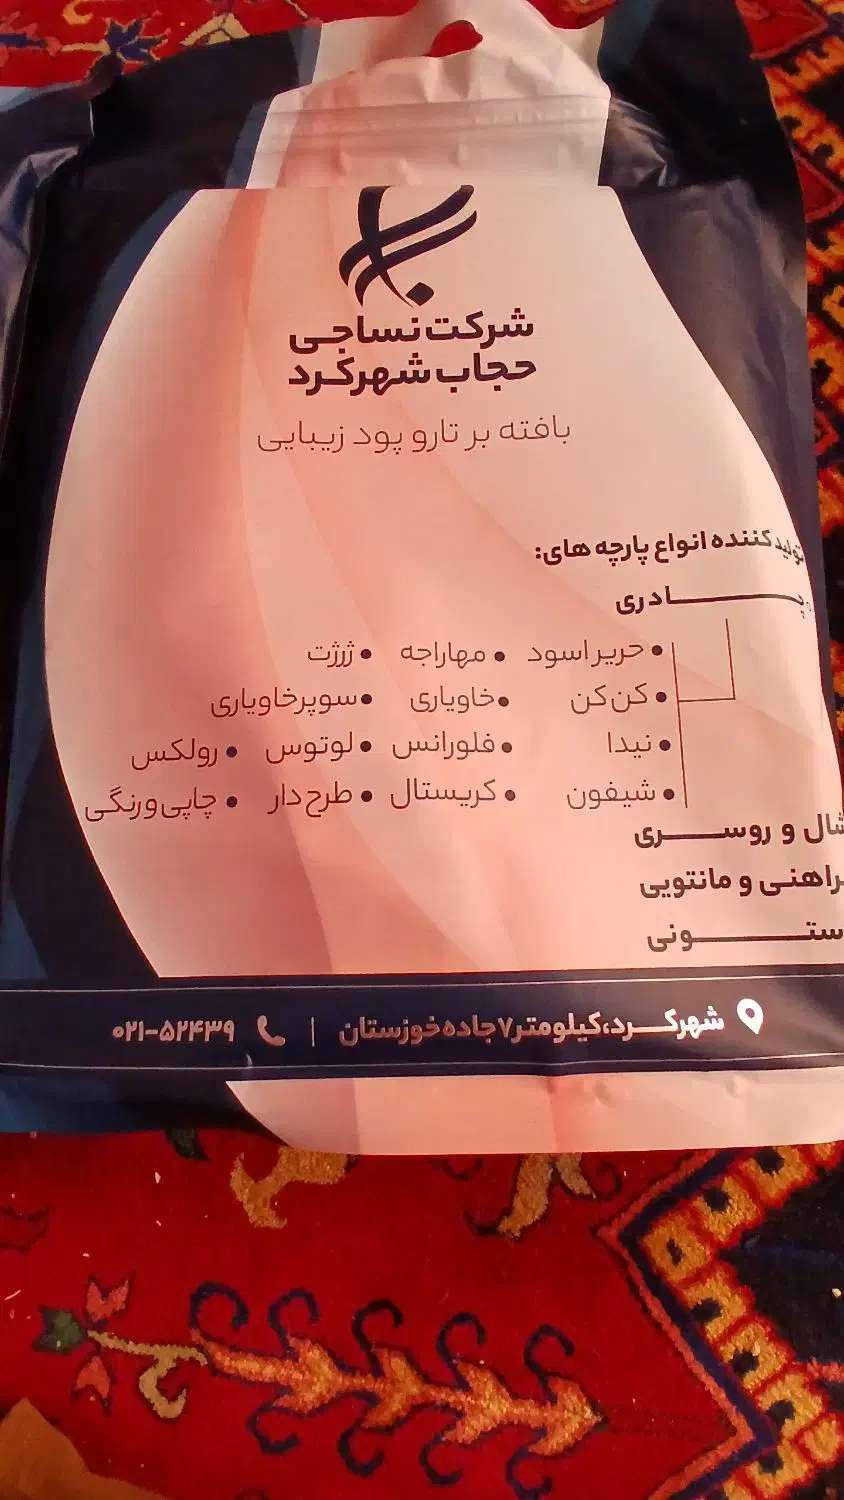 شرکت نساجی
حجاب شهرکرد
بافته بر تار و پود زیبایی
تولیدکننده انواع پارچه های:
چـــــادری
• حریر اسود • مهاراجه • ژرژت
• کن کن • خاویاری • سوپرخاویاری
• نیدا • فلورانس • لوتوس • رولکس
• شیفون • کریستال • طرح دار • چاپی و رنگی
شال و روســـری
و مانتویی
شهرکـــرد، کیلومتر ۷ جاده خوزستان | ۰۲۱-۵۲۴۳۹